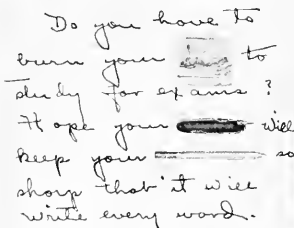 Do you have to
burn your to
study for exams?
Hope your will
keep your so
sharp that it will
write every word.